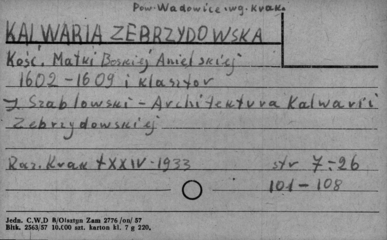 Pow. Wadowice. wg. Krak.
KALWARIA ZEBRZYDOWSKA
Kość. Matki Boskiej Anielskiej
1602 - 1609 i klasztor
J. Szablowski - Architektura Kalwarii
Zebrzydowskiej
Roz. Krak t XXIV - 1933 str 7-26
101 - 108
Jedn. C.W.D 8/Olsztyn Zam 2776 /on/ 57
Bltk. 2563/57 10.000 szt. karton kl. 7 g 220.